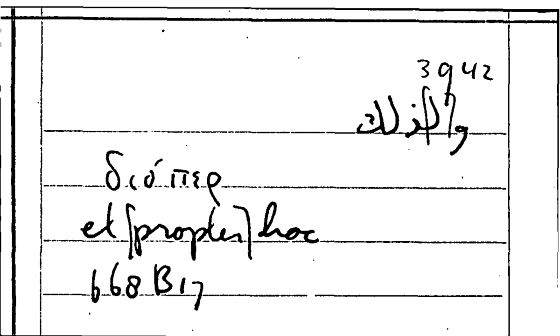 3942
و[ل]ذلك
διόπερ
et [propter] hoc
668 B17